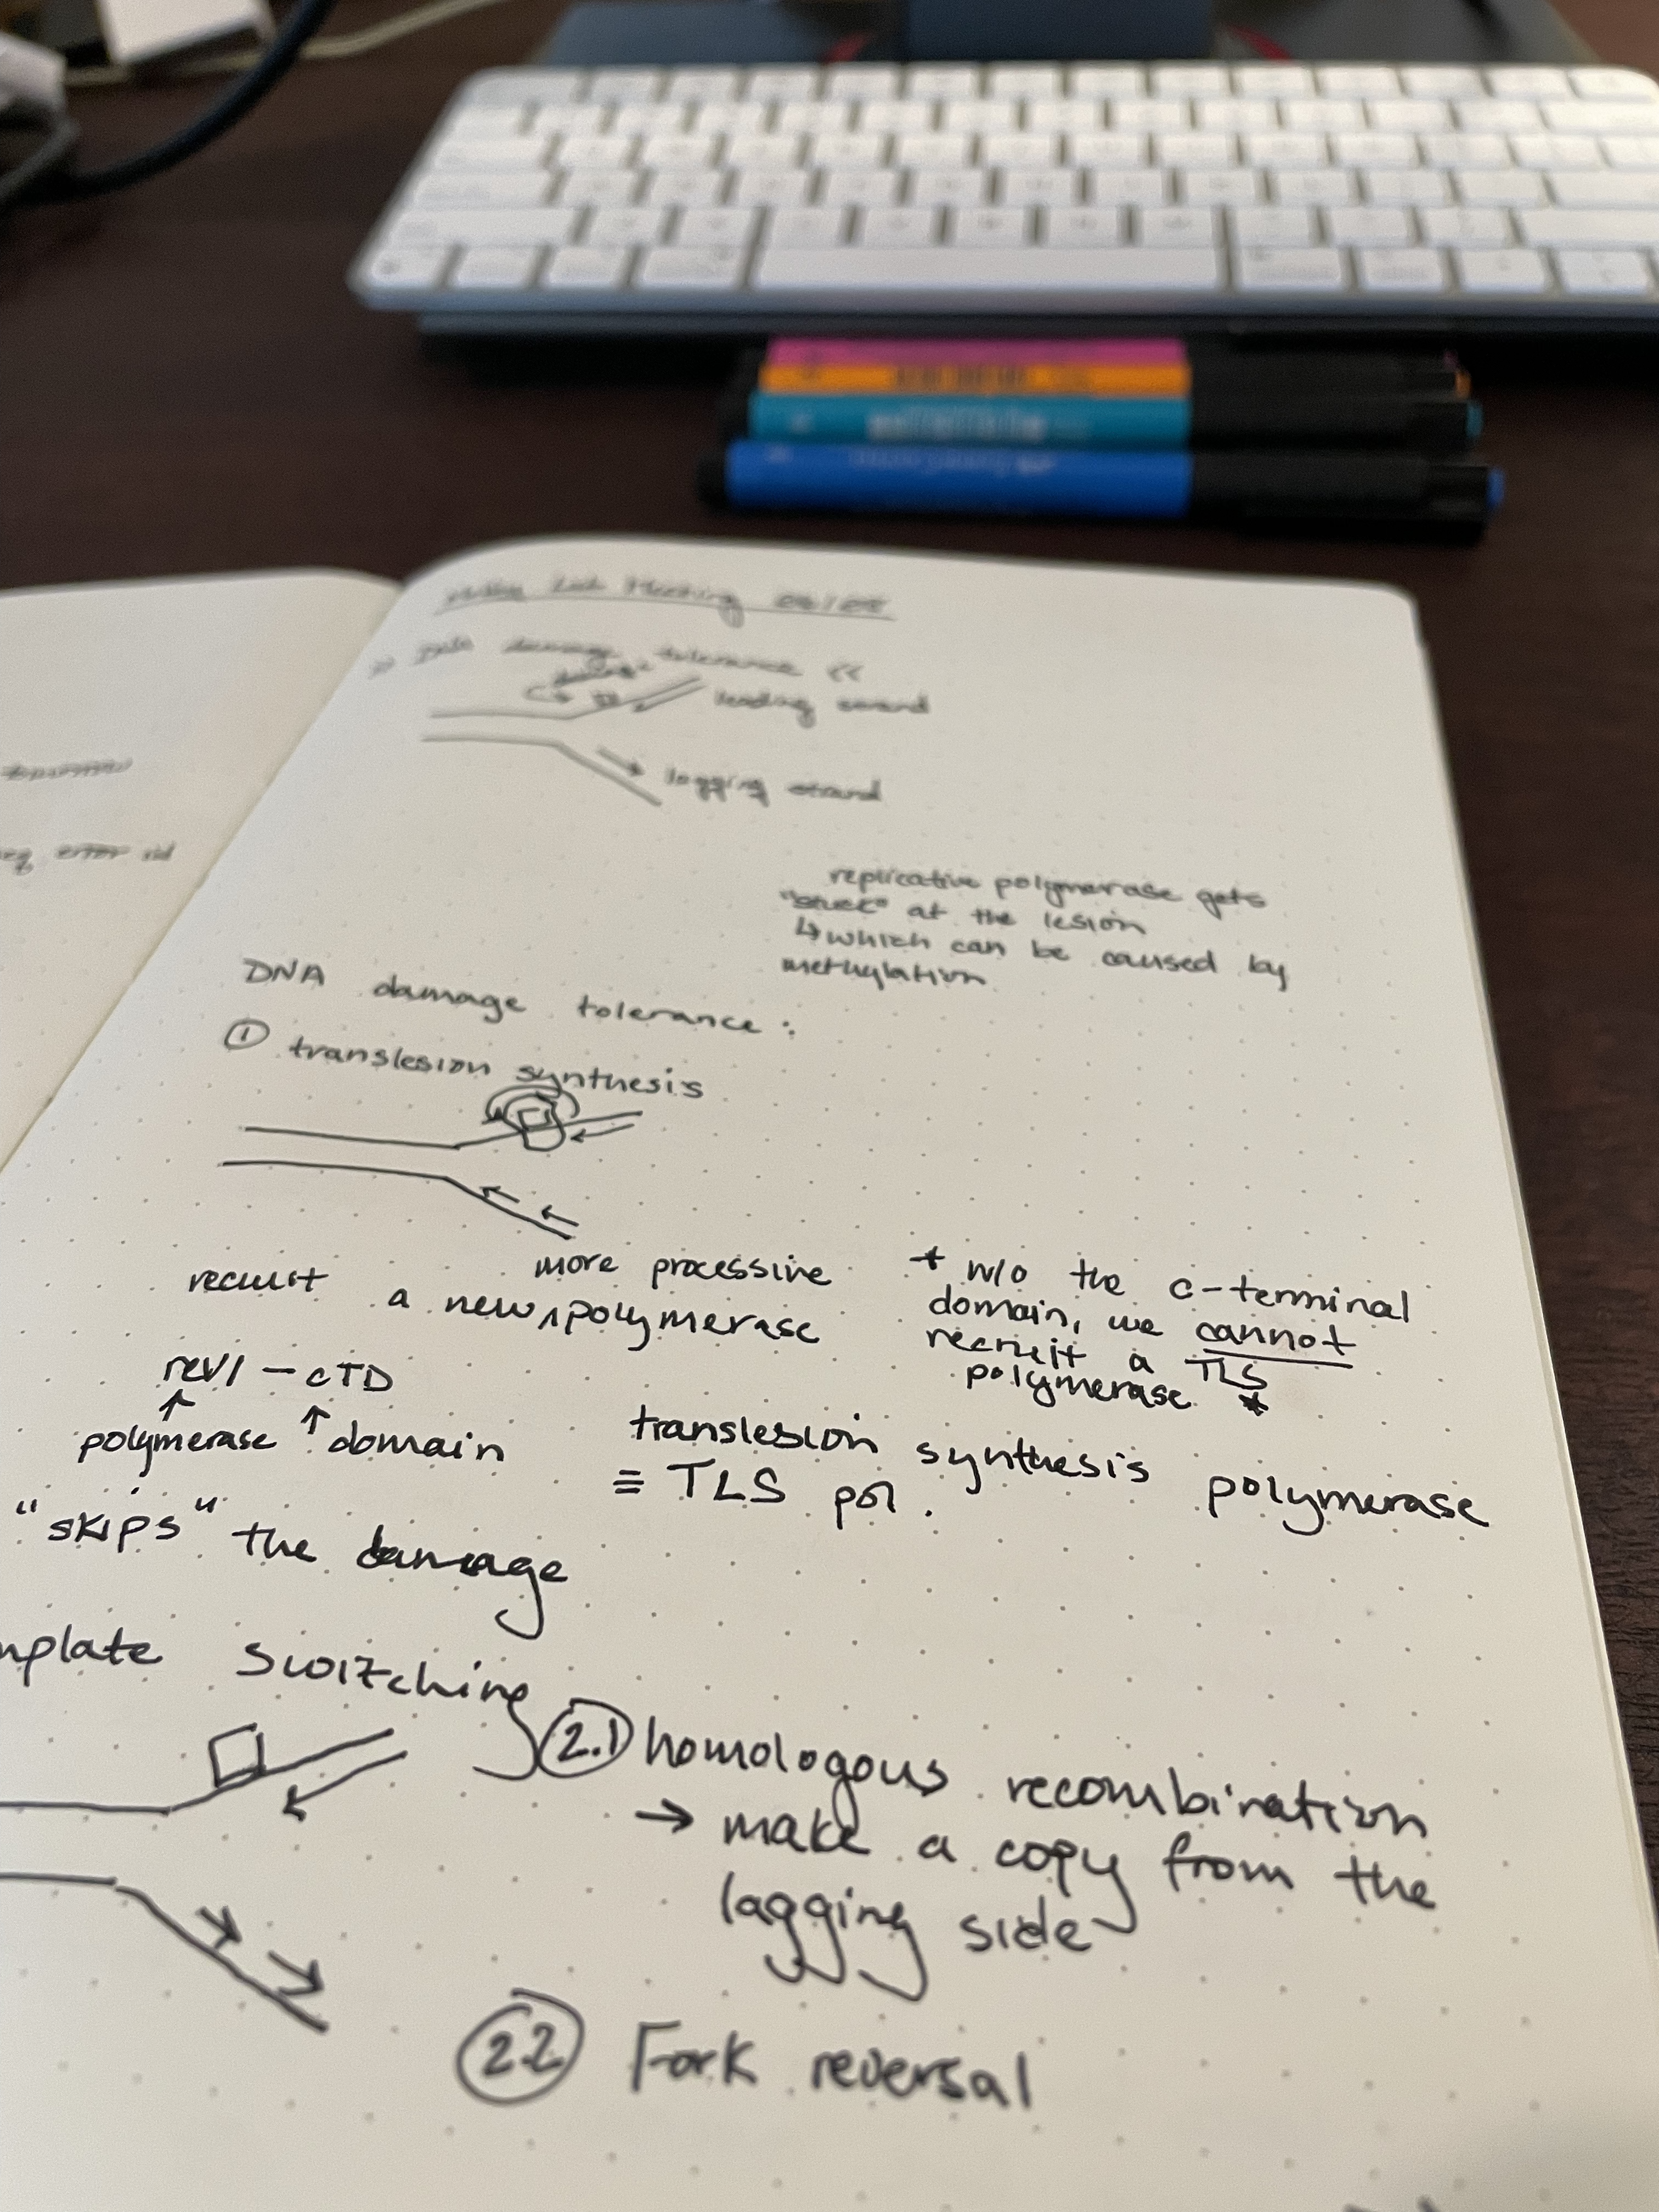 Lab Meeting
>> DNA damage tolerance <<
damage
leading strand
lagging strand
error
replicative polymerase gets
"stuck" at the lesion
↳ which can be caused by
methylation
DNA damage tolerance :
① translesion synthesis
more processive
recruit a new ^ polymerase
* w/o the c-terminal
domain, we cannot
recruit a TLS
polymerase *
rev1 - CTD
↑ ↑
polymerase domain
translesion synthesis polymerase
≡ TLS pol.
"skips" the damage
mplate switching
2.1 homologous recombination
→ make a copy from the
lagging side
2.2 Fork reversal